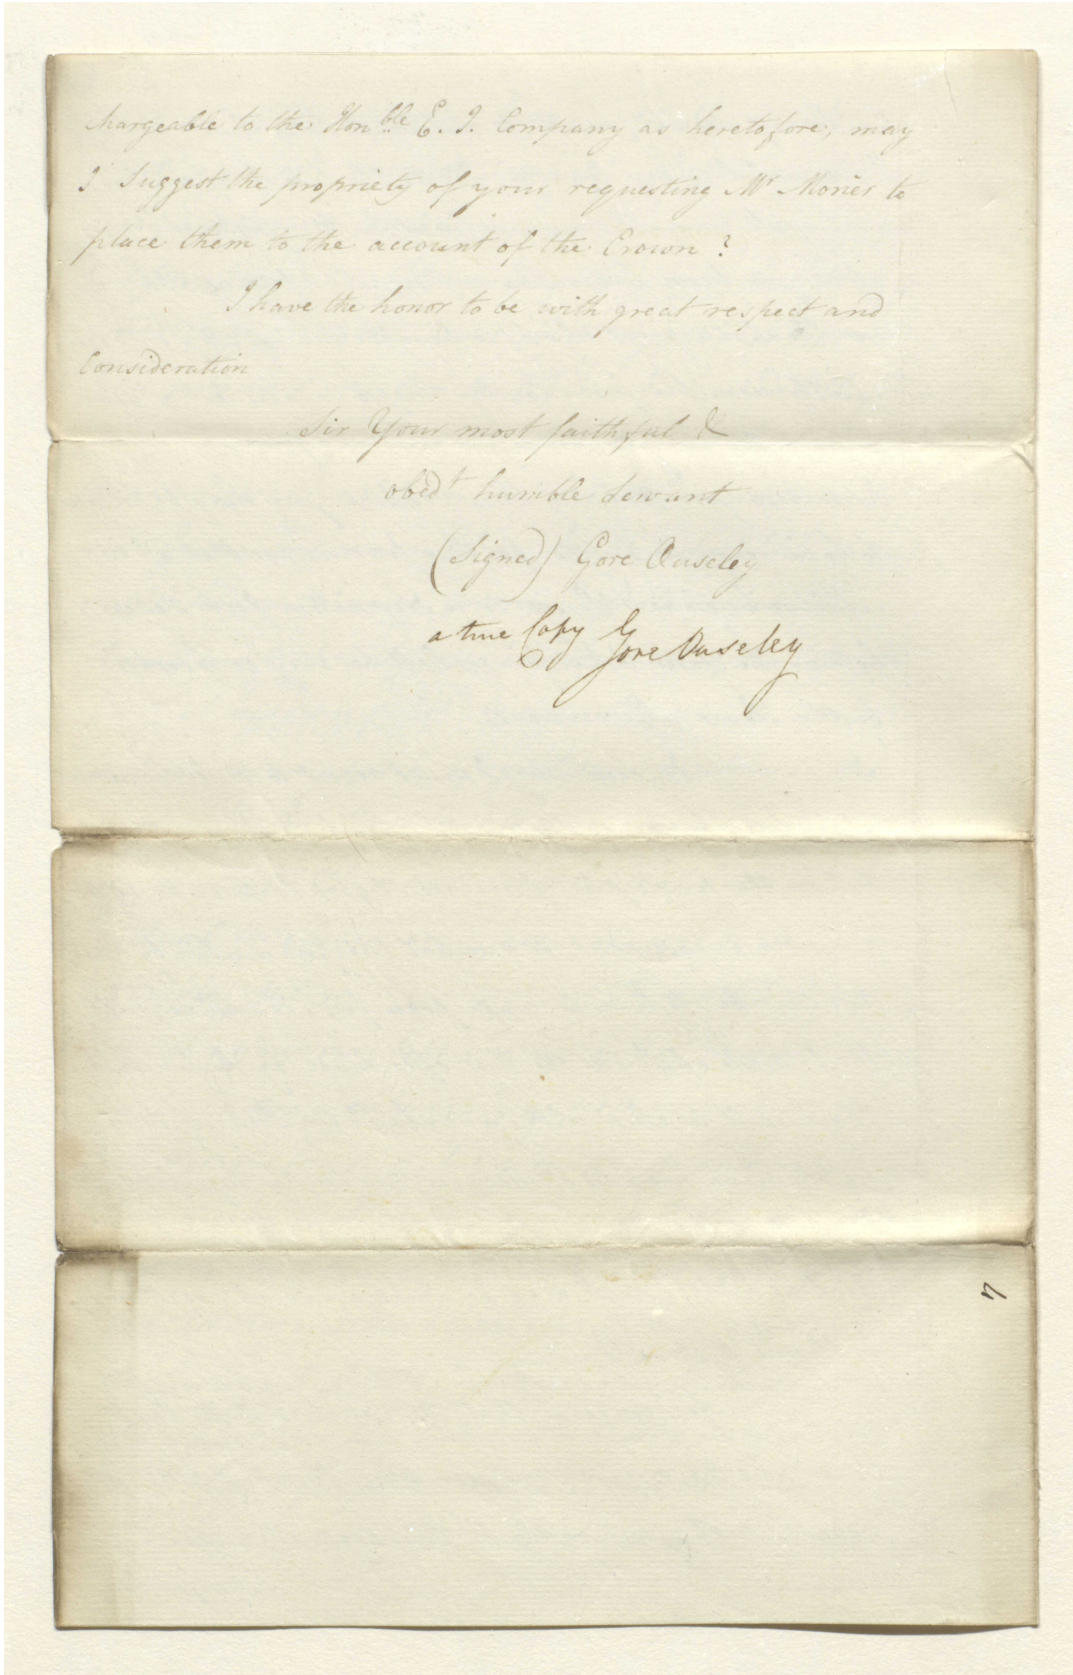 chargeable to the Hon.ble E. I. Company as heretofore, may
I Suggest the propriety of your requesting Mr Morier to
place them to the account of the Crown?
I have the honor to be with great respect and
Consideration
Sir Your most faithful &
obedt humble Servant
(Signed) Gore Ouseley
a true Copy Gore Ouseley